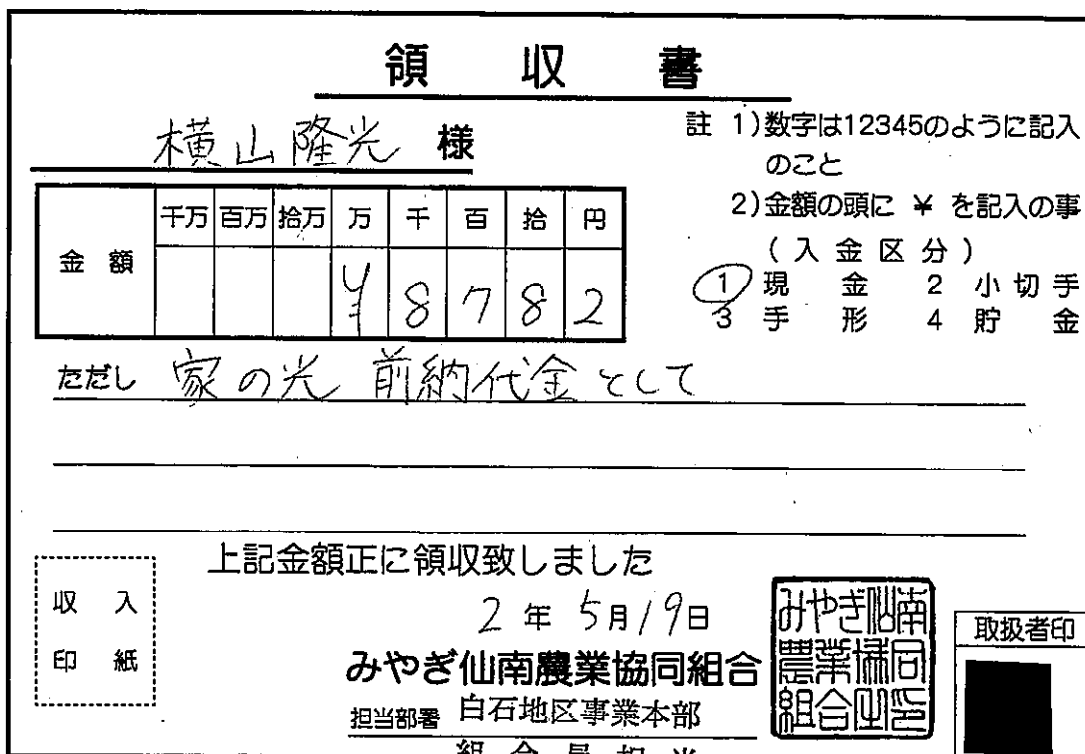 領 収 書
横山隆光 様
註 1)数字は12345のように記入
のこと
2)金額の頭に ¥ を記入の事
(入金区分)
1 現 金 2 小切手
3 手 形 4 貯 金
金 額
千万 百万 拾万 万 千 百 拾 円
¥ 8 7 8 2
ただし 家の光 前納代金として
上記金額正に領収致しました
収 入
印 紙
2 年 5月19日
みやぎ仙南農業協同組合
担当部署 白石地区事業本部
組 合 員 担 当
みやぎ仙南
農業協同
組合之印
取扱者印